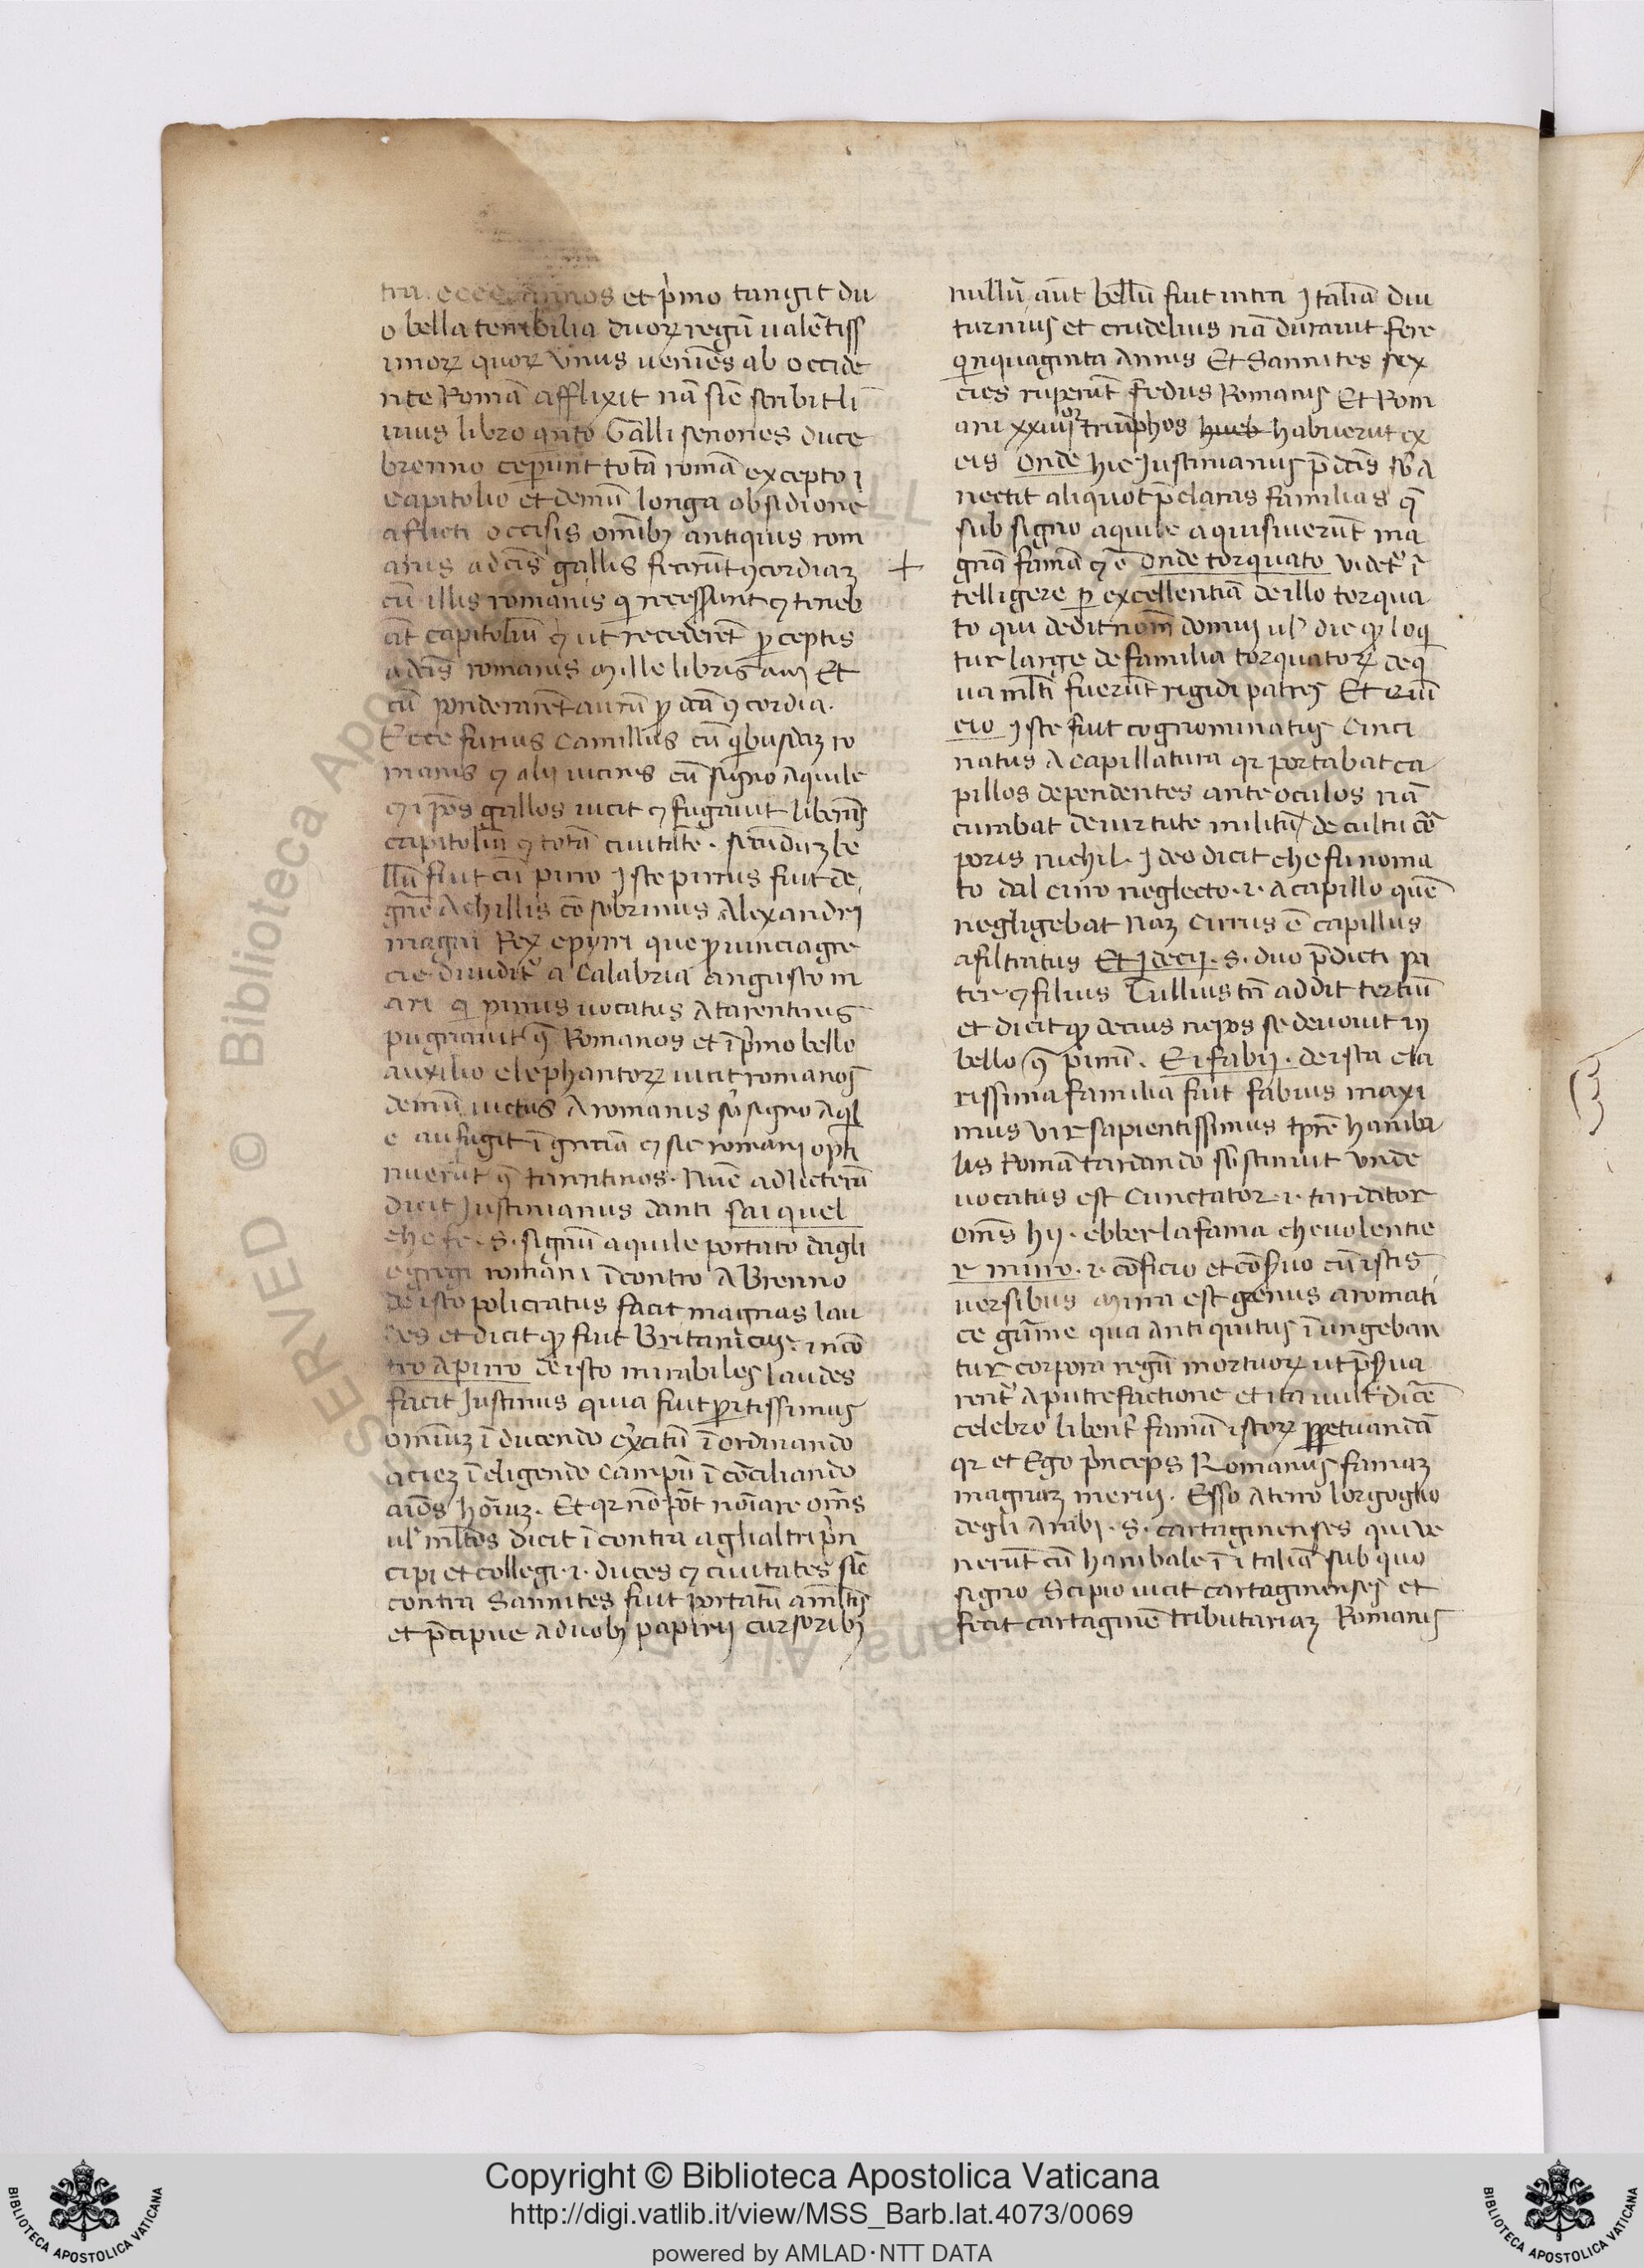 tra. cccc. annos et p̄mo tangit du
o bella terribilia duoꝝ regū ualētiss
imoꝝ quoꝝ vnus ueniēs ab occide
nte Romā afflixit nā sic̄ scribit li
uius libro qnto Galli senones duce
brenno ceperunt totā romā excepto i
capitolio et demū longa obsidione
aflicti occisis om̄ibȝ antiquis rom
anis a dc̄is gallis fecerūt ꝯcordiaȝ
cū illis romanis q̄ recesserunt ⁊ teneb
āt capitoliū ⁊ ut recederēt p̱ ceptis
a dc̄is romanis mille libris aurj Et
cū ponderarēt aurū p̱ dc̄a ꝯcordia.
Ecce furius Camillus cū qibusdaȝ ro
manis ⁊ alij uicinis cū signo aquile
⁊ ip̄os gallos uicit ⁊ fugauit liberās
capitoliū ⁊ totā ciuitatē. secunduȝ be
llū fuit cū pirro Iste pirrus fuit de
gn̄e Achillis cōsobrinus Alexandrj
magni Rex epyri que p̱uincia gre
cie diuiditᷣ a Calabria angusto m
ari qi pirrus uocatus a tarentinis
pugnauit ꝯ̄ Romanos et ī p̄mo bello
auxilio elephantoꝝ uicit romanos
demū uictus a romanis sb̄ signo aql
e aufugit ī greciā ⁊ sic romanj opti
nuerūt ꝯ̄ tarentinos. Nūc ad licterā
dicit Justinianus danti sai quel
che fe. s. signū aquile portato dagli
egregi romani īcontro a Brenno
de isto policratus facit magnas lau
des et dicit qp̱ fuit Britanicus. incō
tro a pirro de isto mirabiles laudes
facit Justinus quia fuit p̱itissimus
omniuȝ ī ducendo ex̄citū ī ordinando
acieȝ ī eligendo campū ī conciliando
aīos hoīuȝ. Et qr nō pōt noīare om̄s
ul̓ ml̄tos dicit īcontra agli altri p̄n
cipi et collegi. i. duces ⁊ ciuitates sic̄
contra Sannites fuit portatū a ml̄tis
et p̄cipue a duobȝ papirij cursoribȝ
nullū aūt bellū fuit intra Italiā diu
turnius et crudelius nā durauit fere
qinquaginta annis Et Sannites sex
cies ruperūt fedus Romanis Et Rom
ani xxiiijor triūphos hueb habuerūt ex
eis Onde hic Justinianus p̄dc̄is sb̄ A
nectit aliquot p̄claras familias q̄
sub signo aquile aquisiuerūt ma
gnā famā ⁊ ē onde torquato videtᷣ ī
telligere p̱ excellentiā de illo torqua
to qui dedit nom̄ domuj ul̓ dic qp̱ loqi
tur large de familia torquatoꝝ de q
ua ml̄ti fuerūt rigidi patres Et quī
cio Iste fuit cognominatus Cinci
natus a capillatura qr portabat ca
pillos dependentes ante oculos nā
curabat de uirtute militū de cultu cor̄
poris nichil. Ideo dicit che fu noma
to dal cirro neglecto. i. a capillo quē
negligebat naȝ Cirrus ē capillus
afiltratus Et I decij. s. duo p̄dicti pa
ter ⁊ filius Tullius tn̄ addit tertiū
et dicit qp̱ decius nepos se deuouit in
bello ꝯ̄ pirrū. E i fabij. de ista cla
rissima familia fuit fabius maxi
mus vir sapientissimus tp̱re haniba
lis Romā tardando sustinuit vnde
uocatus est Cunctator. i. tarditor
om̄s hij. ebber la fama che volentie
r mirro. i. conficio et cōs̄uo cū istis
uersibus mirra est genus aromati
ce gūme qua antiquitus īungeban
tur corpora regū mortuoꝝ ut p̄s̄ua
rentᷣ a putrefactione et ita uult dicē
celebro libentᷣ famā istoꝝ p̱petuandā
qr et Ego p̄nceps Romanus famaȝ
magnaȝ merui. Esso aterro lorgoglio
degli Arabi. s. cartaginenses qui ve
nerūt cū hanibale ī italiā sub quo
signo Scipio uicit cartaginenses et
fecit cartaginē tributariaȝ Romanis
Copyright © Biblioteca Apostolica Vaticana
http://digi.vatlib.it/view/MSS_Barb.lat.4073/0069
powered by AMLAD·NTT DATA
BIBLIOTECA APOSTOLICA VATICANA
BIBLIOTECA APOSTOLICA VATICANA